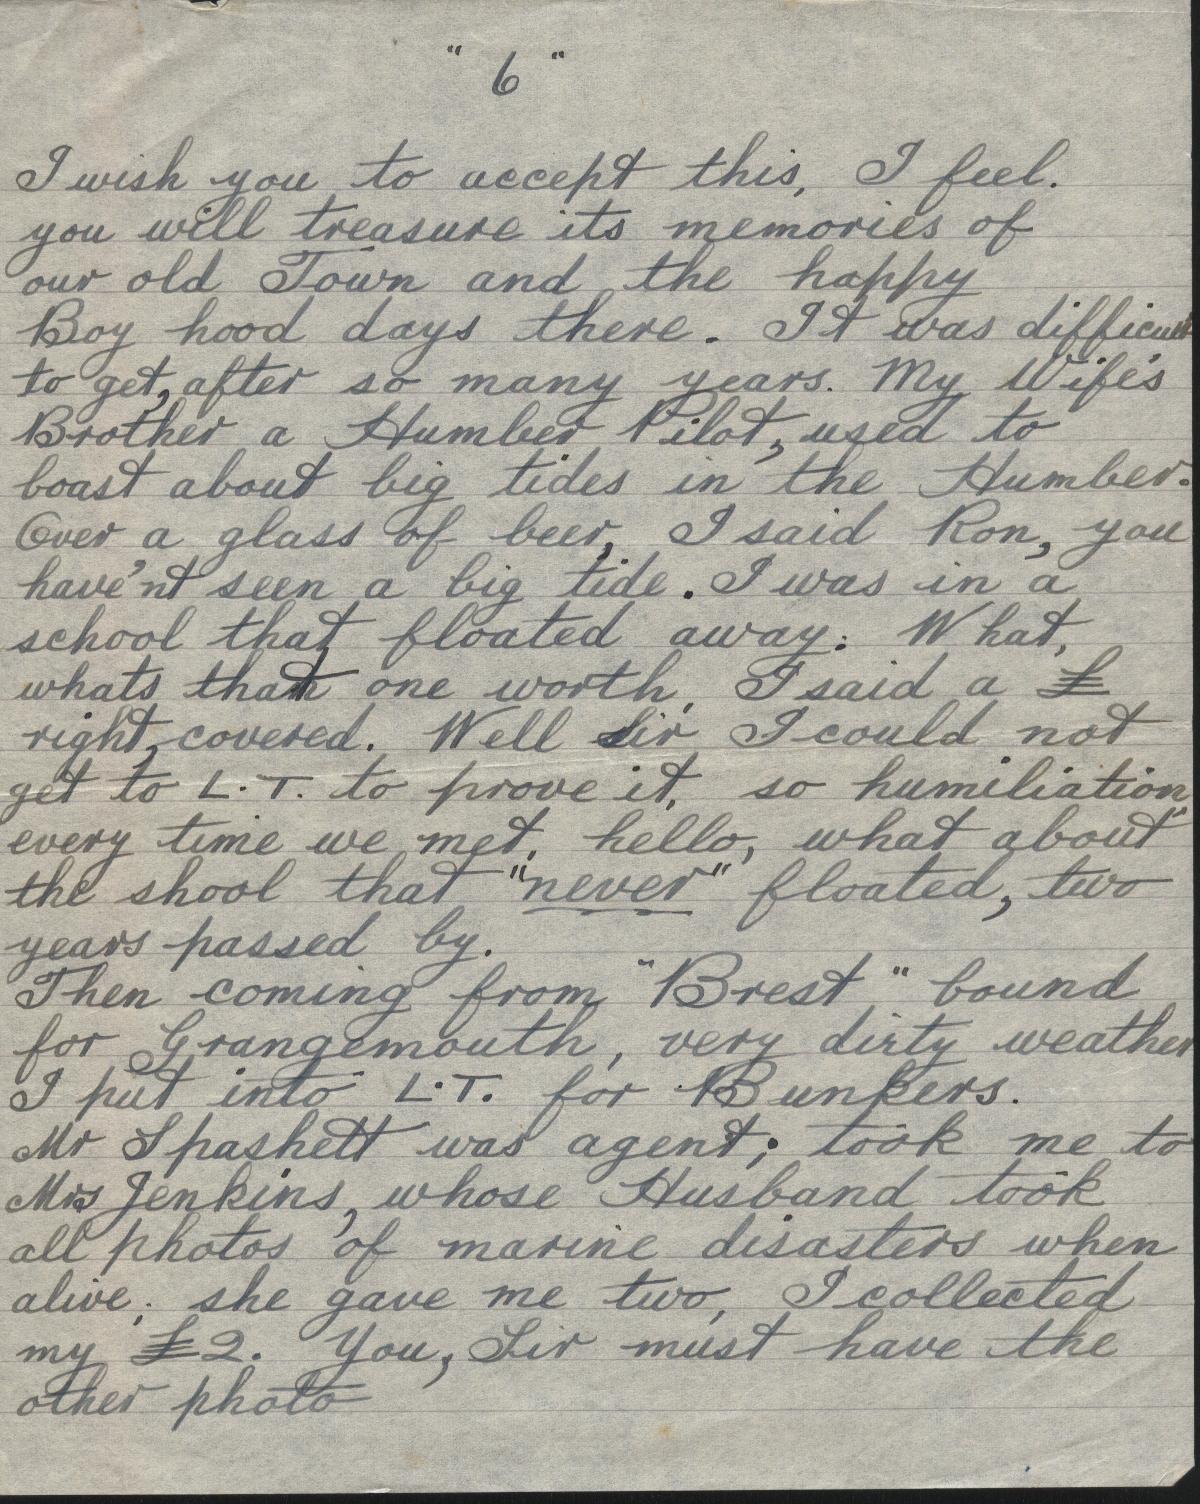 "6"
I wish you to accept this, I feel.
you will treasure its memories of
our old Town and the happy
Boy hood days there. It was difficult
to get, after so many years. My Wife's
Brother a Humber Pilot, used to
boast about big tides in the Humber.
Over a glass of beer, I said Ron, you
have'nt seen a big tide. I was in a
school that floated away. What,
whats that one worth, I said a £
right, covered. Well Sir I could not
get to L.T. to prove it, so humiliation,
every time we met, hello, what about
the shool that "never" floated, two
years passed by.
Then coming from "Brest" bound
for Grangemouth, very dirty weather
I put into L.T. for Bunkers.
Mr Spashett was agent; took me to
Mrs Jenkins, whose Husband took
all photos of marine disasters when
alive; she gave me two, I collected
my £2. You, Sir must have the
other photo